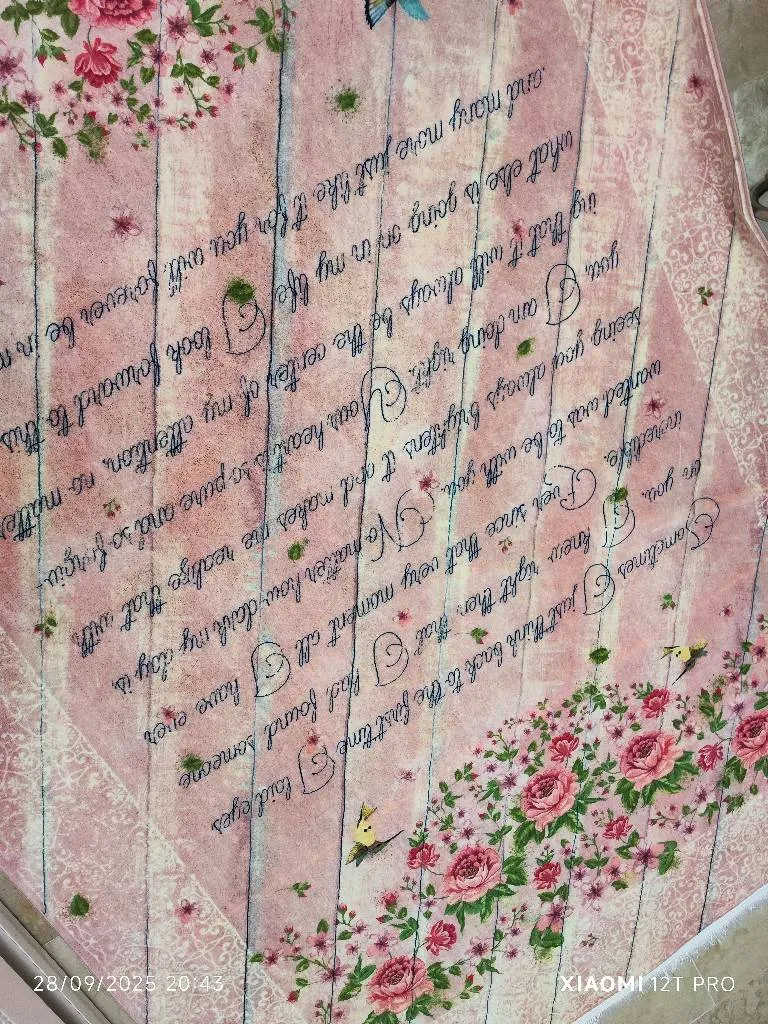 Sometimes I just think back to the first time I laid eyes
on you. I knew right then that I had found someone
incredible. Ever since that very moment all I have ever
wanted was to be with you. No matter how dark my day is
seeing you always brightens it and makes me realize that with
you, I am doing right. Your heart is so pure and so forgiv-
ing that it will always be the center of my attention, no matter
what else is going on in my life I look forward to this
and many more just like it for you will forever be in m
28/09/2025 20:43
XIAOMI 12T PRO